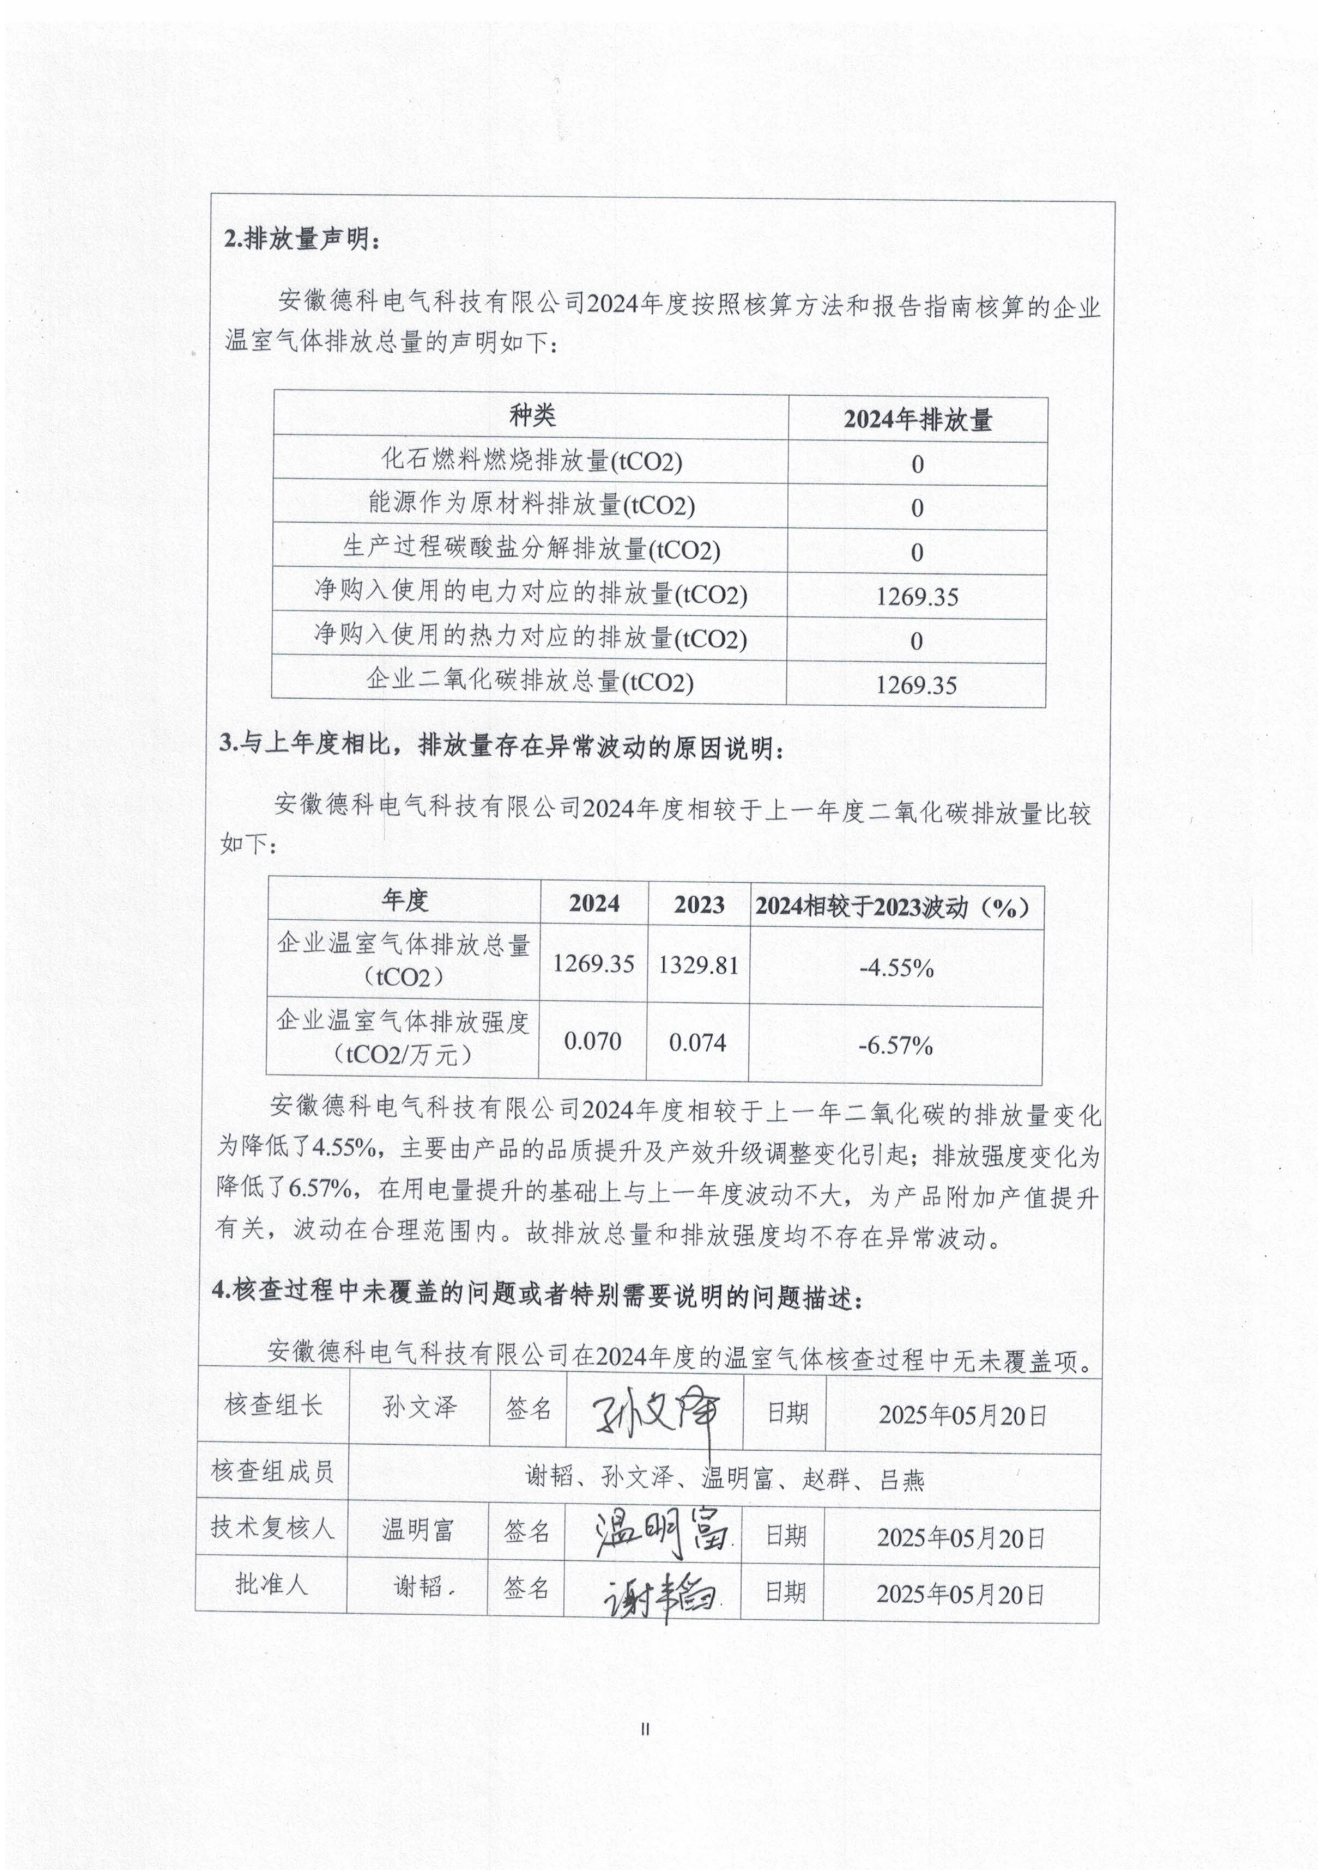 2.排放量声明：
安徽德科电气科技有限公司2024年度按照核算方法和报告指南核算的企业
温室气体排放总量的声明如下：
种类 2024年排放量
化石燃料燃烧排放量(tCO2) 0
能源作为原材料排放量(tCO2) 0
生产过程碳酸盐分解排放量(tCO2) 0
净购入使用的电力对应的排放量(tCO2) 1269.35
净购入使用的热力对应的排放量(tCO2) 0
企业二氧化碳排放总量(tCO2) 1269.35
3.与上年度相比，排放量存在异常波动的原因说明：
安徽德科电气科技有限公司2024年度相较于上一年度二氧化碳排放量比较
如下：
年度 2024 2023 2024相较于2023波动（%）
企业温室气体排放总量
（tCO2） 1269.35 1329.81 -4.55%
企业温室气体排放强度
（tCO2/万元） 0.070 0.074 -6.57%
安徽德科电气科技有限公司2024年度相较于上一年二氧化碳的排放量变化
为降低了4.55%，主要由产品的品质提升及产效升级调整变化引起；排放强度变化为
降低了6.57%，在用电量提升的基础上与上一年度波动不大，为产品附加产值提升
有关，波动在合理范围内。故排放总量和排放强度均不存在异常波动。
4.核查过程中未覆盖的问题或者特别需要说明的问题描述：
安徽德科电气科技有限公司在2024年度的温室气体核查过程中无未覆盖项。
核查组长 孙文泽 签名 孙文泽 日期 2025年05月20日
核查组成员 谢韬、孙文泽、温明富、赵群、吕燕
技术复核人 温明富 签名 温明富 日期 2025年05月20日
批准人 谢韬 签名 谢韬 日期 2025年05月20日
II